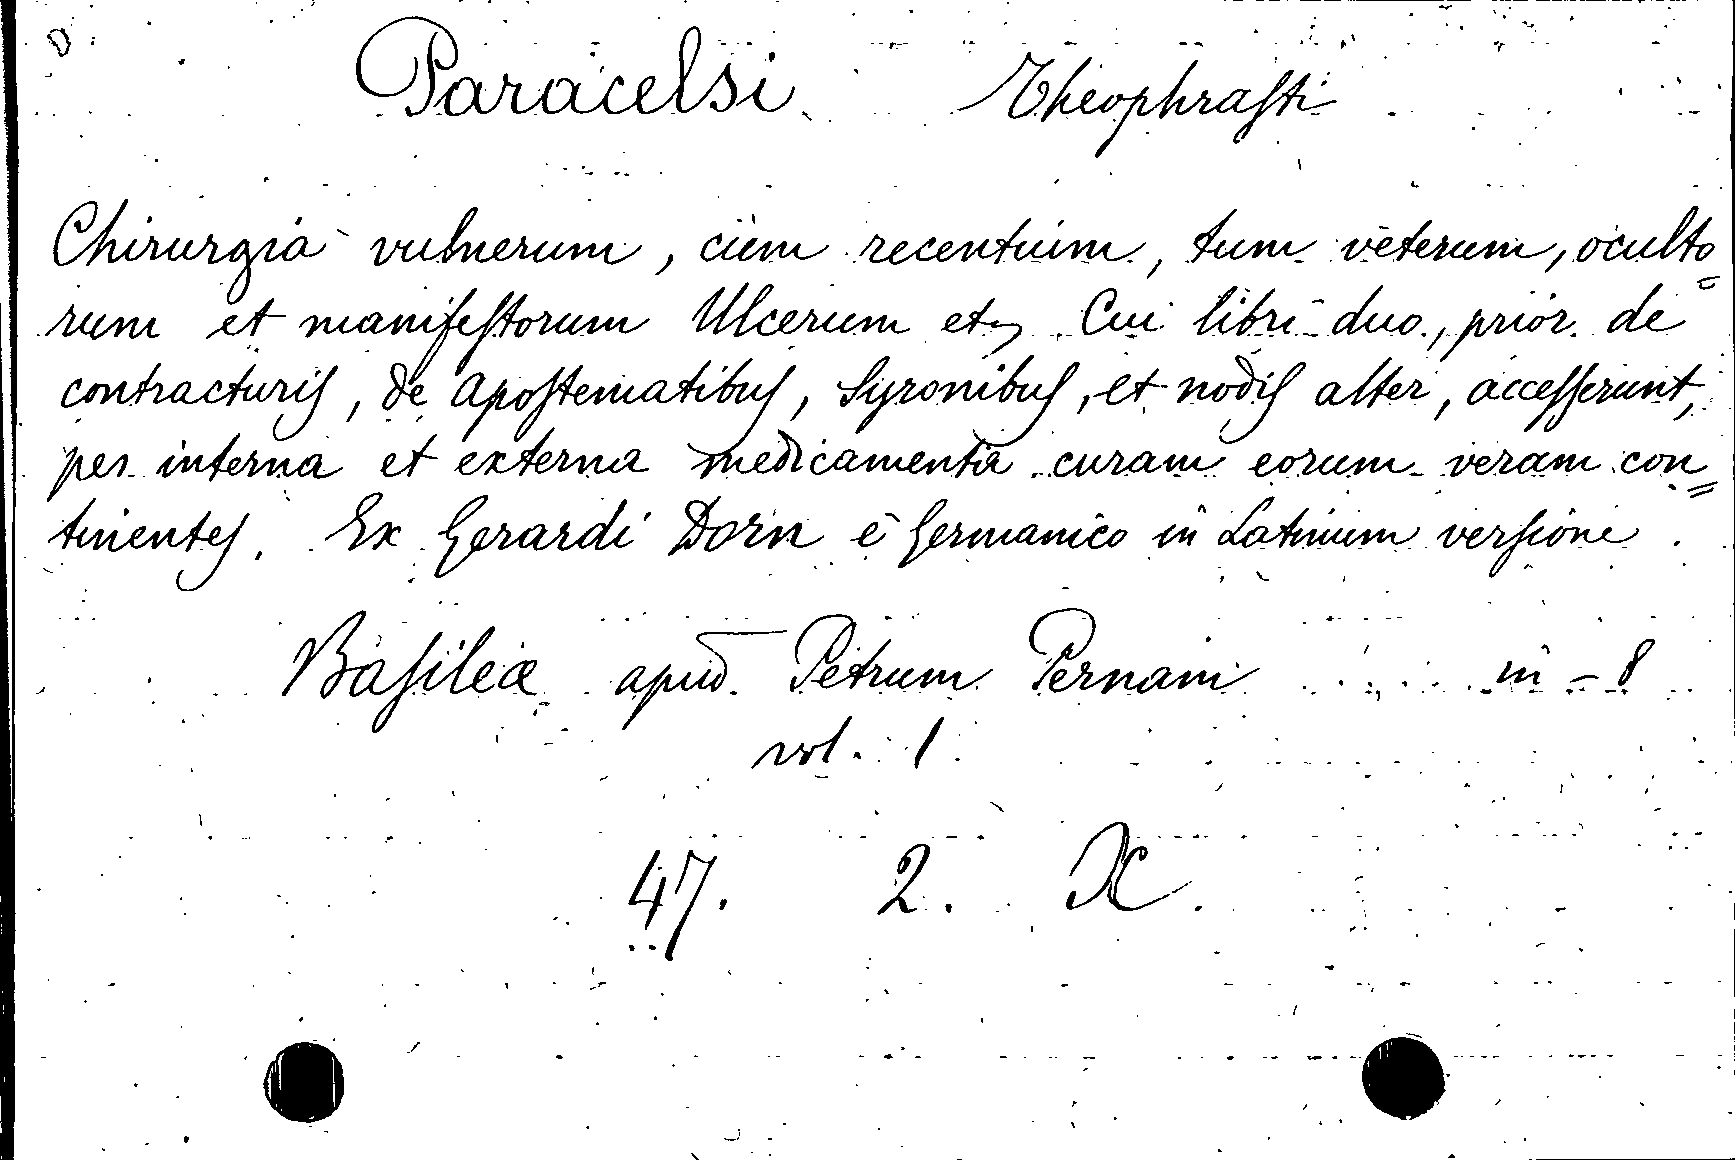 Paracelsi Theophrasti
Chirurgia vulnerum, cum recentium, tum veterum, oculto=
rum et manifestorum Ulcerum etc Cui libri duo, prior de
contracturis, de apostematibus, Syronibus, et nodis alter, accesserunt,
per interna et externa medicamenta curam eorum veram con=
tinentes. Ex Gerardi Dorn e Germanico in Latinum versione.
Basileæ apud Petrum Pernam in - 8
vol. 1.
47. 2. X.